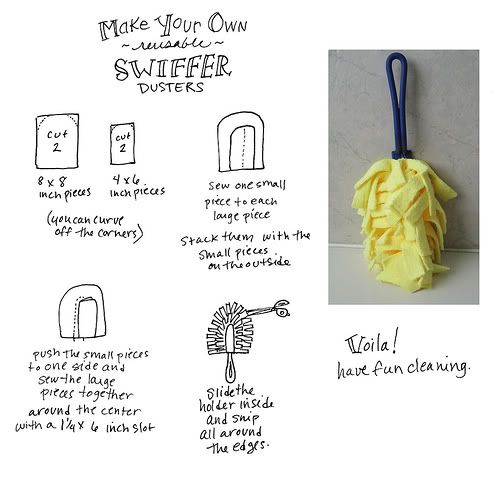 Make Your Own
~reusable~
SWIFFER
DUSTERS
cut
2
cut
2
8 x 8
inch pieces
4 x 6
inch pieces
(you can curve
off the corners)
sew one small
piece to each
large piece
Stack them with the
small pieces
on the outside
push the small pieces
to one side and
sew the large
pieces together
around the center
with a 1 1/4 x 6 inch slot
slide the
holder inside
and snip
all around
the edges.
Voila!
have fun cleaning.